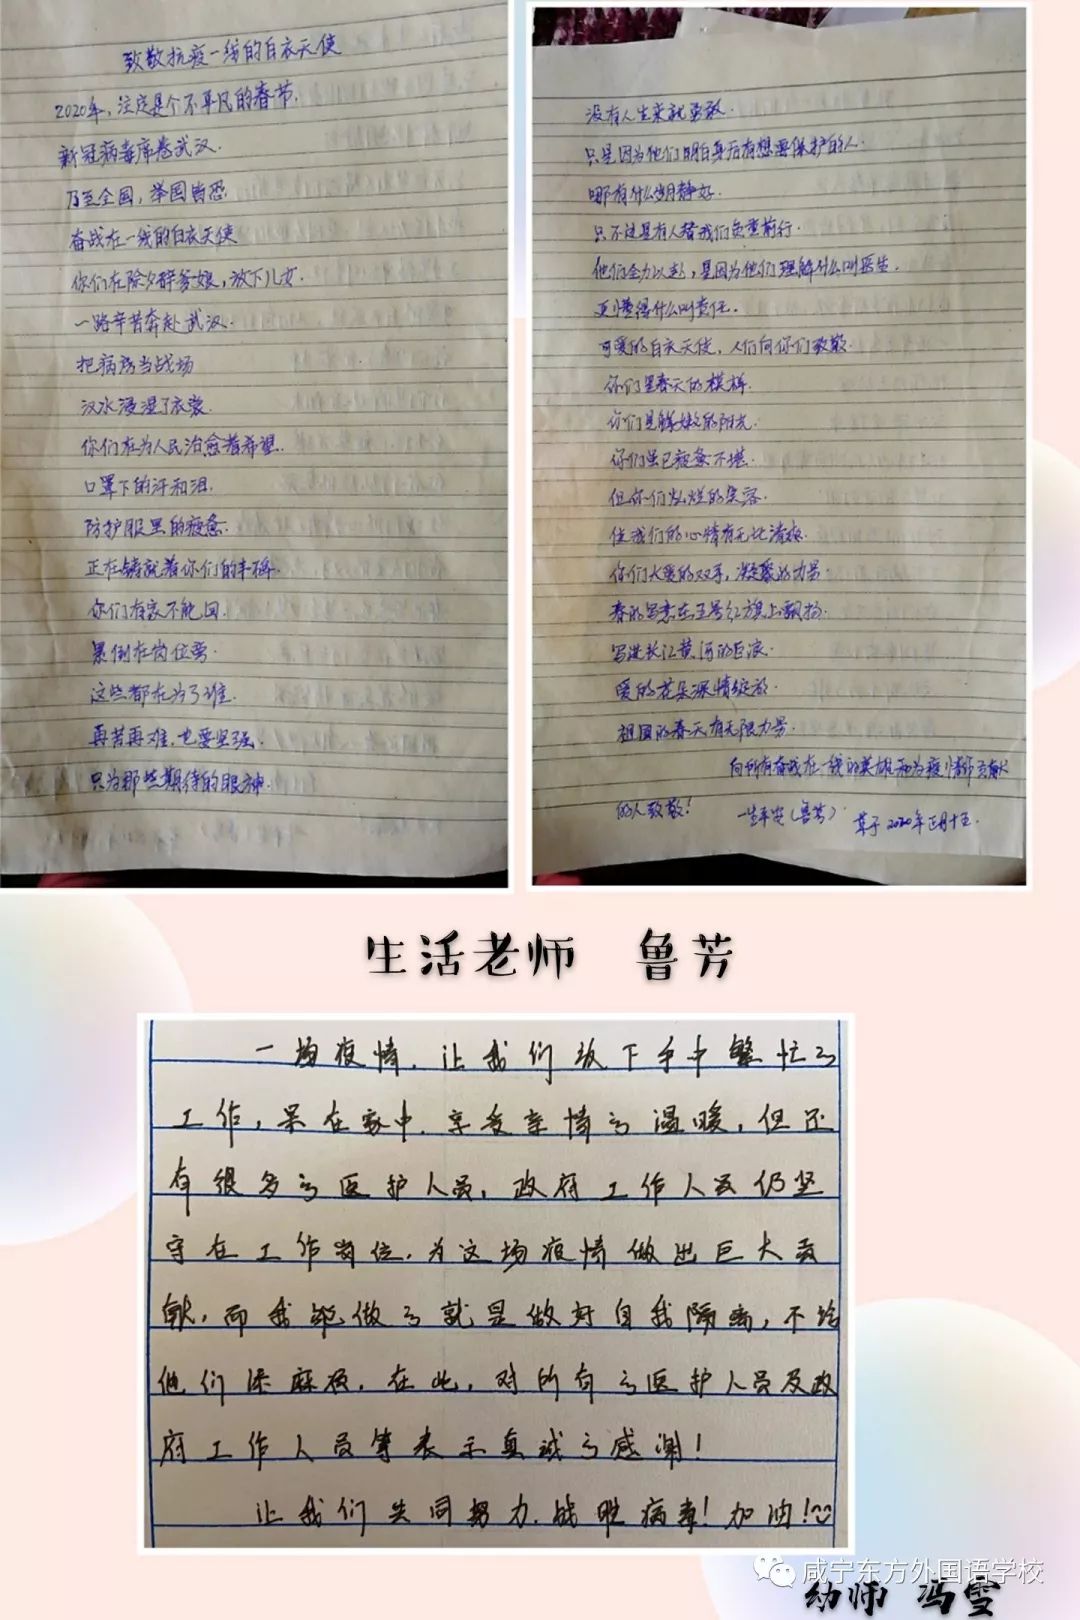 致敬抗疫一线的白衣天使
2020年,注定是个不平凡的春节.
新冠病毒席卷武汉.
乃至全国,举国皆恐.
奋战在一线的白衣天使
你们在除夕辞爹娘,放下儿女.
一路辛苦奔赴武汉.
把病房当战场
汉水浸湿了衣裳
你们在为人民治愈着希望.
口罩下的汗和泪.
防护服里的疲惫.
正在铸就着你们的丰碑.
你们有家不能回.
累倒在岗位旁
这些都在为了谁.
再苦再难,也要坚强.
只为那些期待的眼神.
没有人生来就勇敢.
只是因为他们明白身后有想要保护的人.
哪有什么岁月静好.
只不过是有人替我们负重前行.
他们全力以赴,是因为他们理解什么叫医生.
更懂得什么叫责任.
可爱的白衣天使,人们向你们致敬.
你们是春天的模样.
你们是鲜嫩的阳光.
你们虽已疲惫不堪.
但你们灿烂的笑容.
使我们的心情有无比清爽.
你们大爱的双手,凝聚的力量.
春的写意在五星红旗上飘扬.
写进长江黄河的巨浪.
爱的花朵深情绽放.
祖国的春天有无限力量.
向所有奋战在一线的英雄和为疫情都贡献
的人致敬! 一生平安(鲁芳) 草于2020年正月十五.
生活老师 鲁芳
一场疫情,让我们放下手中繁忙的
工作,呆在家中,享受亲情的温暖,但还
有很多的医护人员,政府工作人员仍坚
守在工作岗位,为这场疫情做出巨大贡
献,而我能做的就是做好自我隔离,不给
他们添麻烦,在此,对所有的医护人员及政
府工作人员等表示真诚的感谢!
让我们共同努力,战胜病毒!加油!
咸宁东方外国语学校
幼师 冯雪